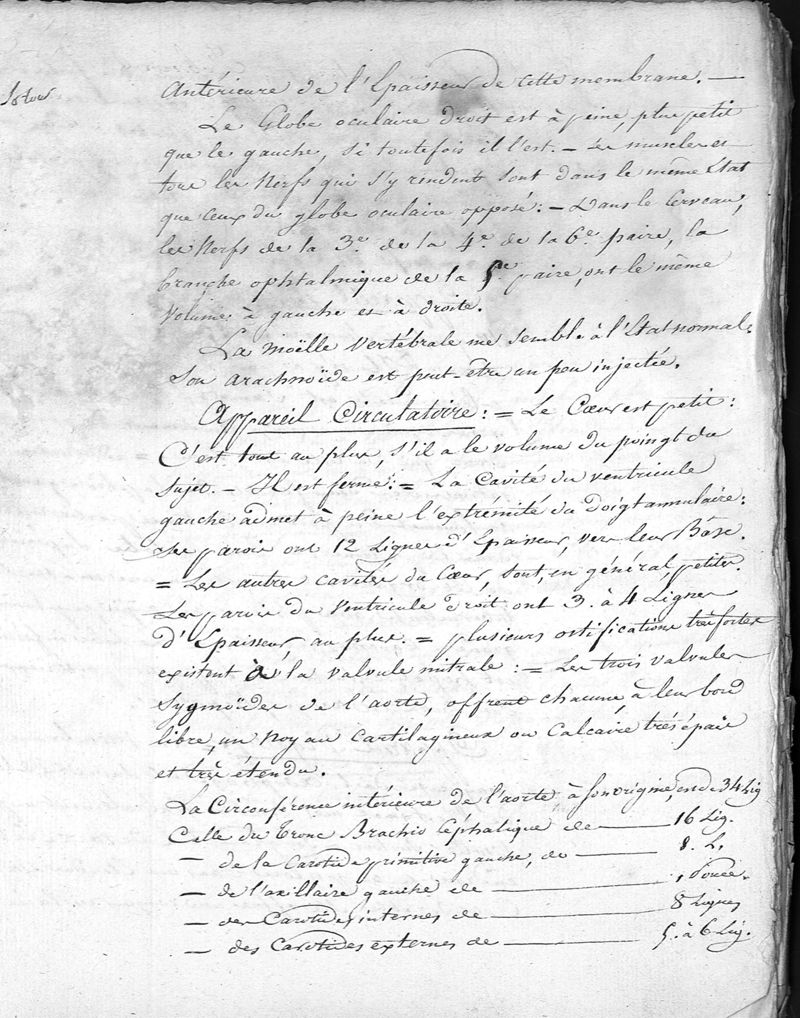 antérieure de l'Epaisseur de cette membrane. —
Le Globe oculaire droit est à peine, plus petit
que le gauche, si toutefois il l'est. — Les muscles et
tous les Nerfs qui s'y rendent sont dans le même Etat
que ceux du globe oculaire opposé: — Dans le Cerveau,
les Nerfs de la 3e. de la 4e. de la 6e. paire, la
branche ophtalmique de la 5e. paire, ont le même
Volume à gauche et à droite.
La moëlle vertébrale me semble à l'Etat normal.
Son arachnoïde est peut-être un peu injectée.
Appareil Circulatoire: = Le Cœur est petit:
C'est tout au plus, s'il a le volume du poingt du
Sujet. — Il est ferme: = La Cavité du ventricule
gauche admet à peine l'extrémité du doigt annulaire:
Ses parois ont 12 Lignes d'Epaisseur, vers leur Base.
= Les autres cavités du Cœur, sont, en général, petites.
Les parois du Ventricule Droit ont 3. à 4 Lignes
D'Epaisseur, au plus. = plusieurs ostifications très fortes
existent à la valvule mitrale: = Les trois valvules
Sygmoïdes de l'aorte, offrent chacune, à leur bord
libre, un Noyau Cartilagineux ou Calcaire très épais
et très étendu.
La Circonférence intérieure de l'aorte à son origine, est de 34 Lig
Celle du Tronc Brachio Céphalique de — 16 Lig.
— de la Carotide primitive gauche, de — 8. L.
— de l'axillaire gauche de — 1 pouce.
— des Carotides internes de — 8 Lignes
— des Carotides externes de — 5. à 6 Lig.